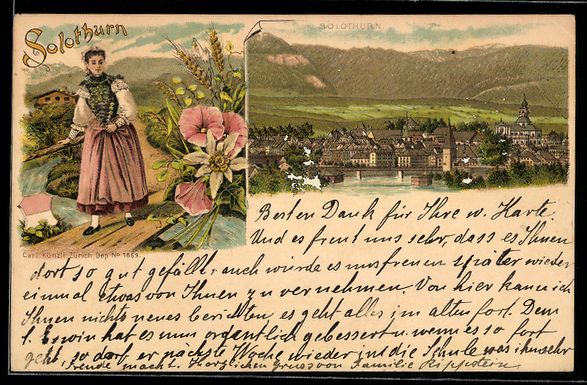 Solothurn
SOLOTHURN
Carl Künzli, Zürich, Dep. No 1669.
Besten Dank für Ihre w. Karte.
Und es freut uns sehr, dass es Ihnen
dort so gut gefällt, auch würde es uns freuen später wieder
einmal etwas von Ihnen zu vernehmen. Von hier kann ich
Ihnen nichts neues berichten, es geht alles im alten fort. Dem
l. Erwin hat es nun ordentlich gebessert u. wenn es so fort
geht, so darf er nächste Woche wieder in die Schule was ihm sehr
Freude macht. Herzlichen Gruss von Familie